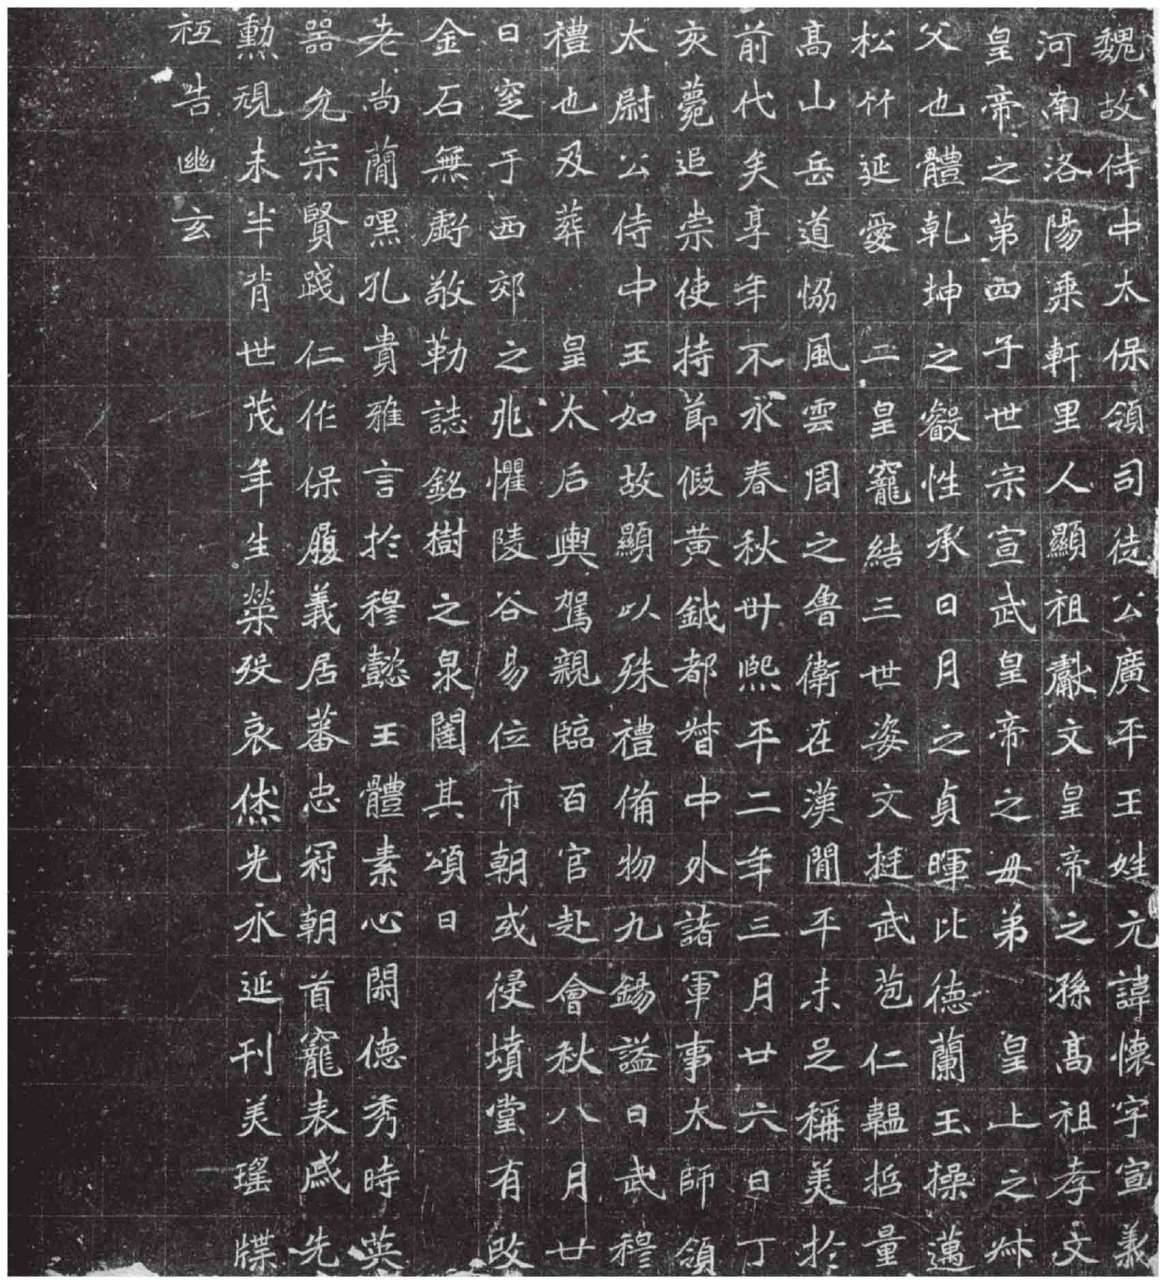 魏故侍中太保領司徒公廣平王姓元諱懷字宣義
河南洛陽乘軒里人顯祖獻文皇帝之孫高祖孝文
皇帝之第四子世宗宣武皇帝之母弟皇上之叔
父也體乾坤之叡性承日月之貞暉比德蘭玉操邁
松竹延愛二皇寵結三世姿文挺武苞仁韞哲量
高山岳道協風雲周之魯衛在漢閒平未足稱美於
前代矣享年不永春秋卅熙平二年三月廿六日丁
亥薨追崇使持節假黃鉞都督中外諸軍事太師領
太尉公侍中王如故顯以殊禮備物九錫謚曰武穆
禮也及葬皇太后輿駕親臨百官赴會秋八月廿
日窆于西郊之兆懼陵谷易位市朝或侵墳堂有改
金石無虧敬勒誌銘樹之泉闥其頌曰
老尚簡嘿孔貴雅言於穆懿王體素心閑德秀時英
器允宗賢踐仁作保履義居蕃忠冠朝首寵表戚先
勳視未半背世茂年生榮歿哀休光永延刊美瑤牒
祗告幽玄